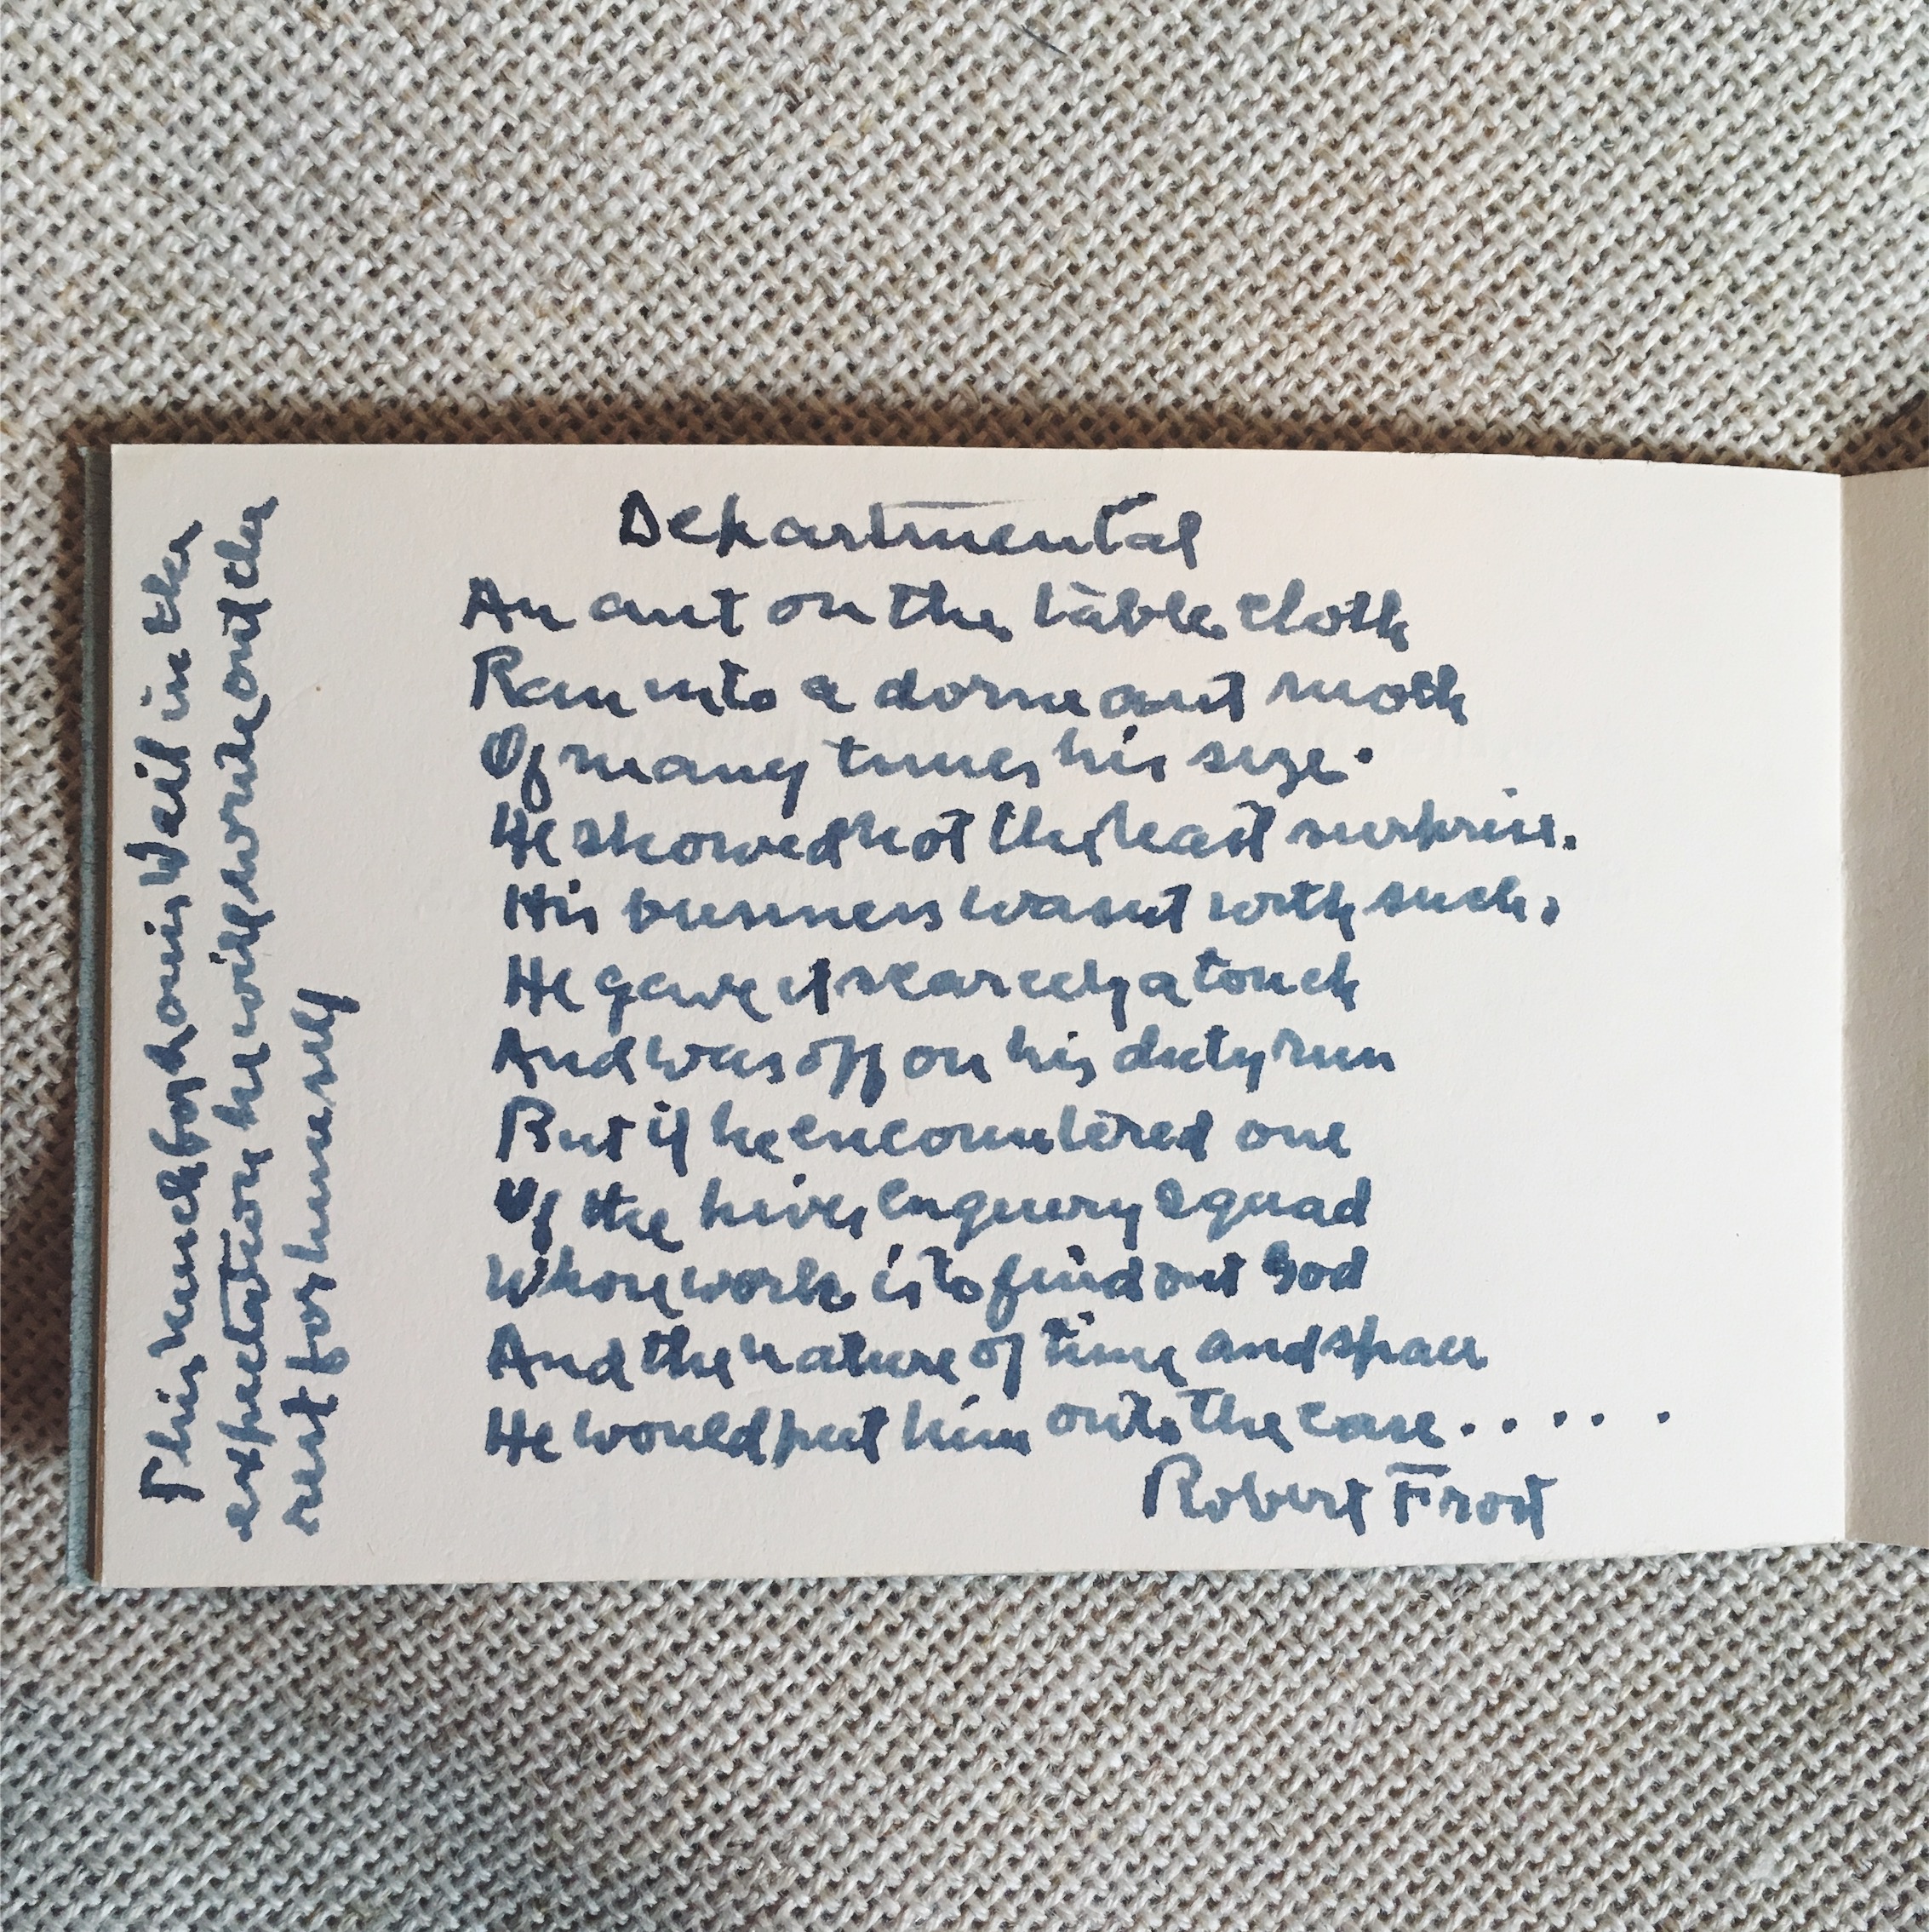 Departmental
An ant on the table cloth
Ran into a dormeant moth
Of many times his size.
He showed not the least surprise.
His business wasnt with such.
He gave it scarcely a touch
And was off on his duty run
But if he encountered one
Of the hives enquiry squad
Whose work is to find out God
And the nature of time and space
He would put him onto the case. . . . . .
Robert Frost
This much for Louis Wail in the
expectation he will write out the
rest for himself